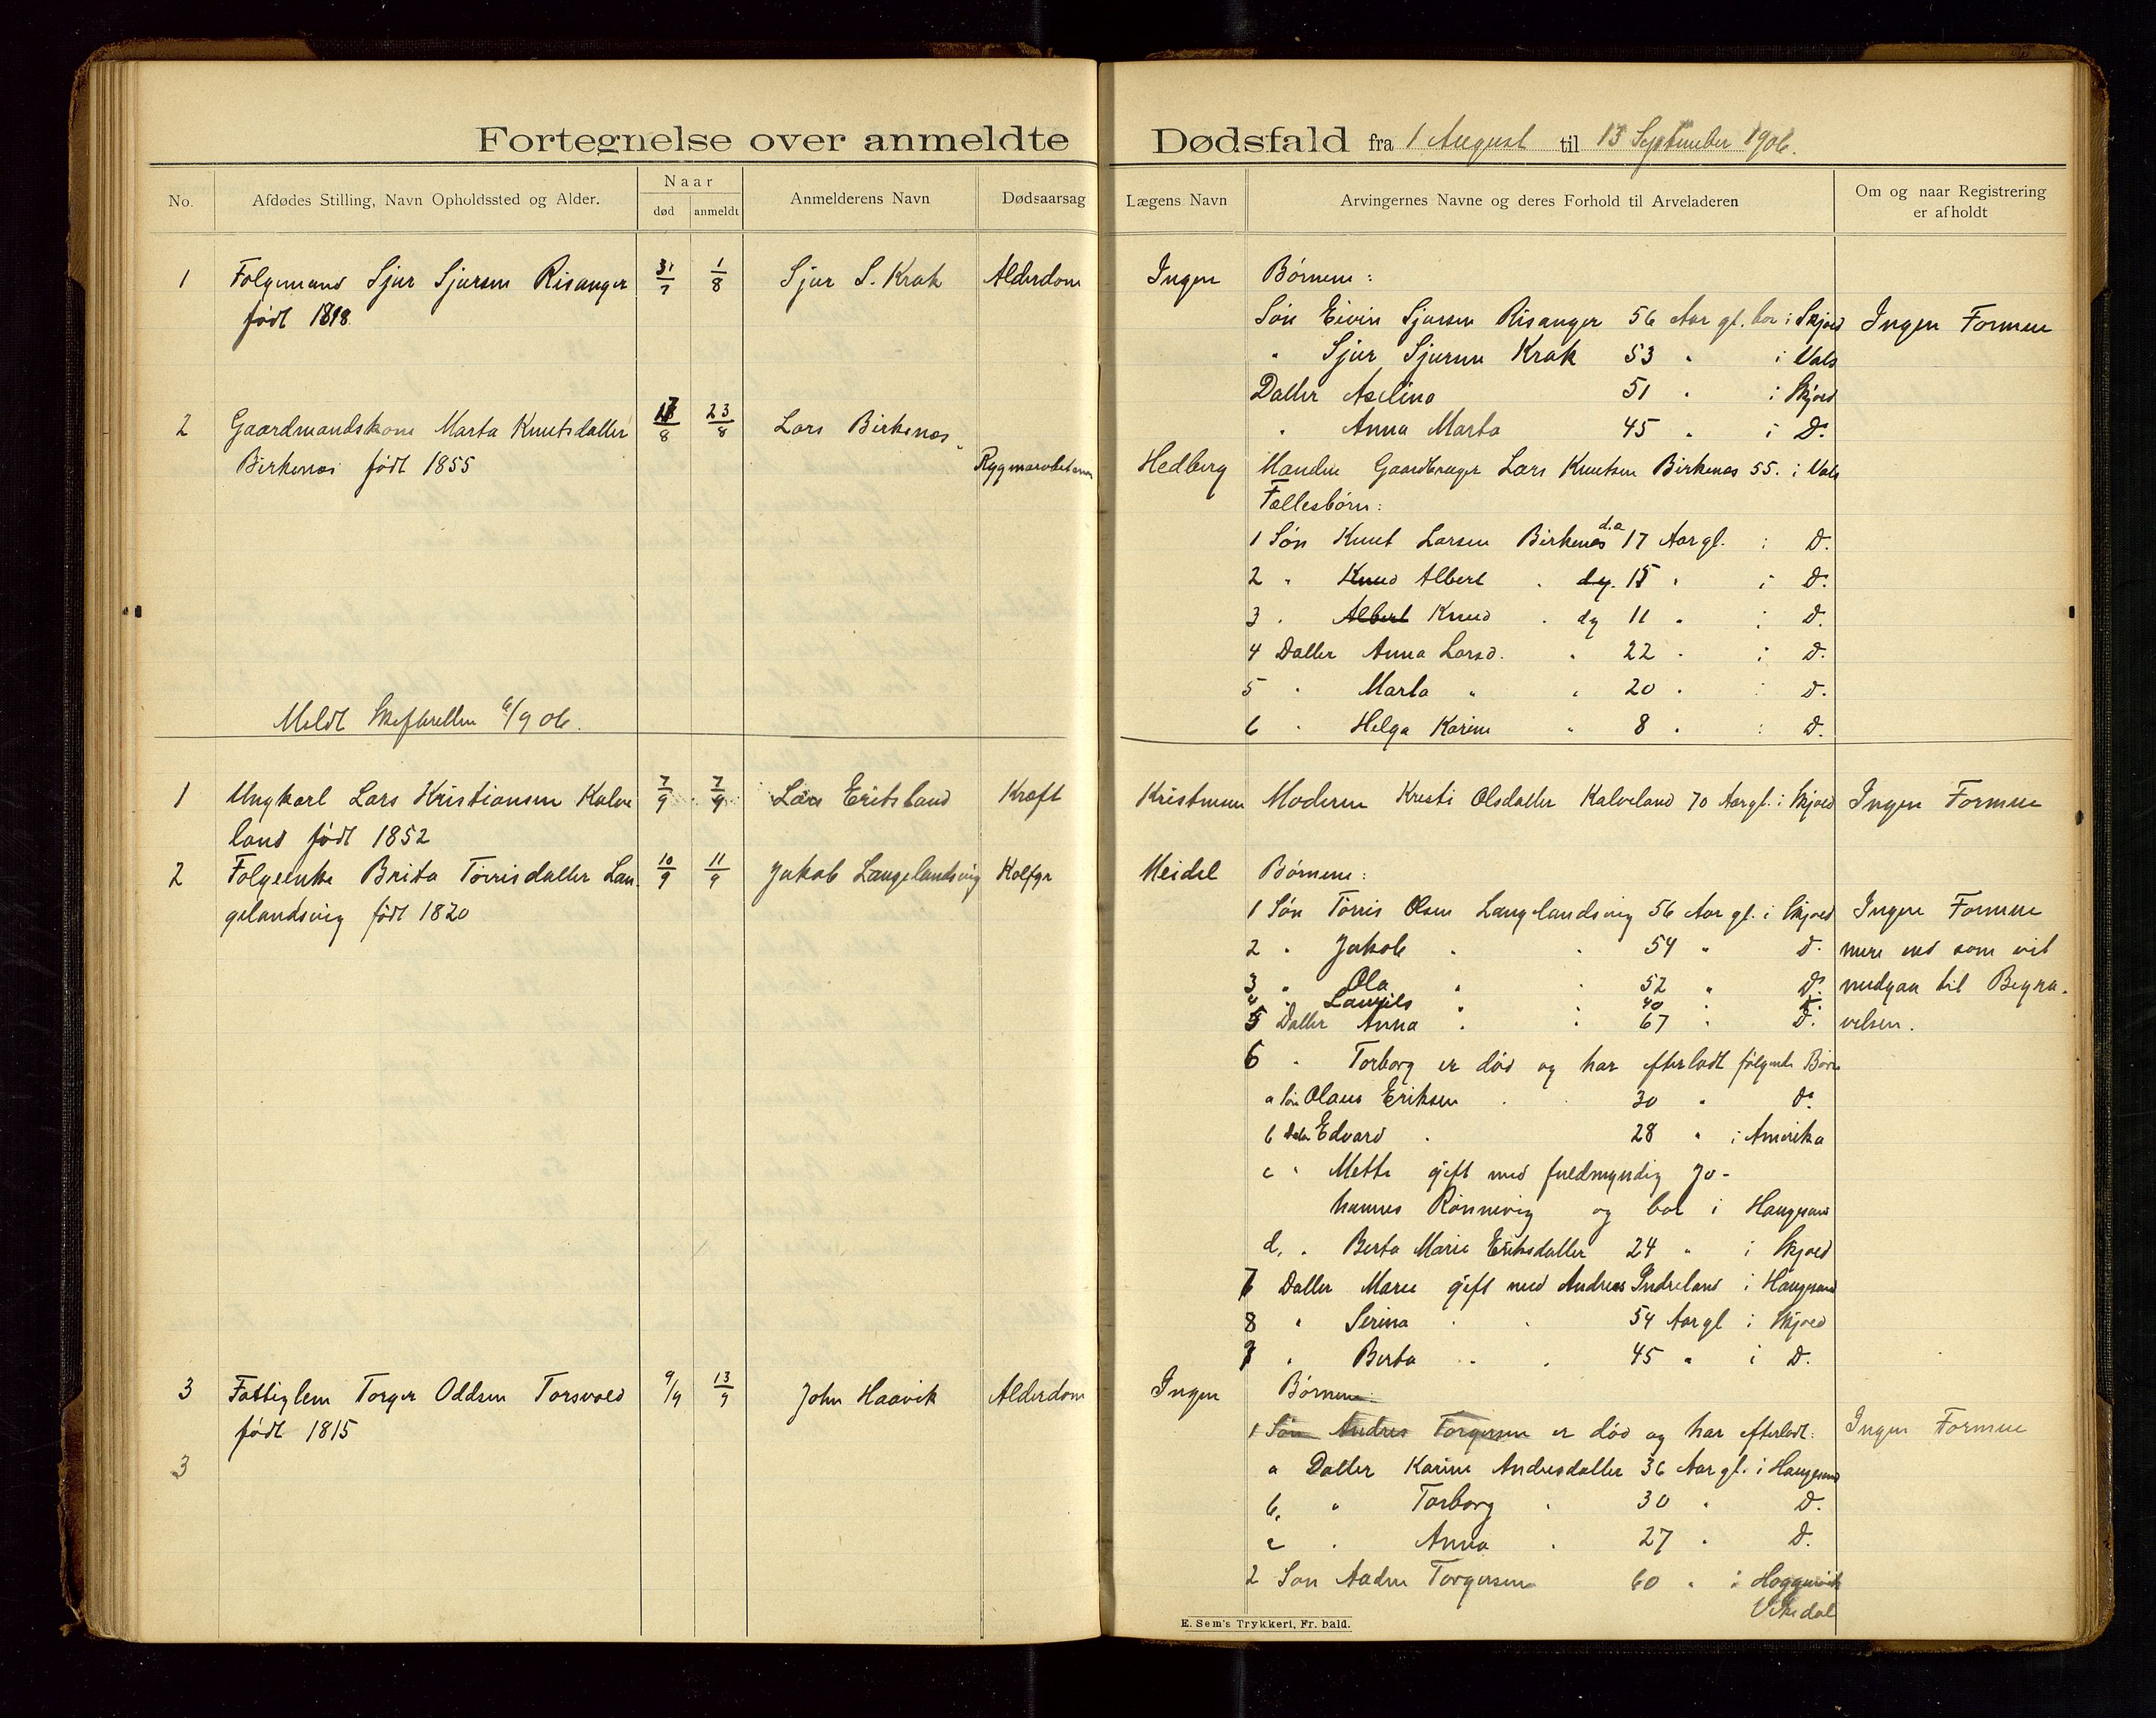 Fortegnelse over anmeldte Dødsfald fra 1 August til 13 September 1906.
No. Afdødes Stilling, Navn Opholdssted og Alder. Naar død anmeldt Anmelderens Navn Dødsaarsag Lægens Navn Arvingernes Navne og deres Forhold til Arveladeren Om og naar Registrering er afholdt
1 Folgemand Sjur Sjursen Risanger 31/7 1/8 Sjur S. Krak Alderdom Ingen Børnene:
født 1818. Søn Eivin Sjursen Risanger 56 Aar gl. bor i Skjold Ingen Formue
" Sjur Sjursen Krak 53 " i Vats
Datter Aselina 51 " i Skjold
2 Gaardmandskone Marta Knutsdatter 17/8 23/8 Lars Birkenes " Anna Marta 45 " i Do.
Birkenes født 1855 Hedberg Manden Gaardbruger Lars Knutsen Birkenes 55. i Vats
Fællesbörn:
1 Søn Knut Larsen Birkenes d.æ 17 Aar gl. i Do.
2 " Knud Albert " dy. 15 " i Do.
3 " Albert Knud " dy 11 " i Do.
4 Datter Anna Larsd. " 22 " i Do.
5 " Marta " " 20 " i Do.
Meldt Skifteretten 6/9 06. 6 " Helga Karine " 8 " i Do.
1 Ungkarl Lars Kristiansen Kalve 7/9 7/9 Lars Eritsland Kræft Moderen Kristi Olsdatter Kalveland 70 Aar gl. i Skjold Ingen Formue
land født 1852
2 Folgeenke Brita Törrisdatter Lan- 10/9 11/9 Jakob Langelandsvig Meidel Börnene:
gelandsvig født 1820 1 Søn Törris Olsen Langelandsvig 56 Aar gl. i Skjold Ingen Formue
2 " Jakob " " 54 " Do. mere end som vil
3 " Ola " " 52 " Do. medgaa til Begra-
4 " " 40 " Do.
5 Datter Anna " " 67 " Do. velsen.
6 " Torborg er död og har efterladt følgende Börn
a Søn Olaus Eriksen " " 30 " Do.
b Edvard " 28 " i Amerika
c " Mette gift med fuldmyndig Jo-
hannes Rönnevig og bor i Haugesund
d. " Berta Marie Eriksdatter 24 " i Skjold
7 Datter Marie gift med Andreas Indreland i Haugesund
8 " Serina " " 54 Aar gl i Skjold
9 " Berta " " 45 " i Do.
3 Fattiglem Torger Oddsen Torsvold 9/9 13/9 John Haavik Alderdom Ingen Børnene:
født 1815 1 Søn Andres Torgersen er død og har efterladt: Ingen Formue
3 a Datter Karine Andresdatter 36 Aar gl. i Haugesund
b. " Torborg " 30 " Do.
c " Anna " 27 " Do.
2 Søn Torgersen 60 " i
Vikedal
E. Sem's Trykkeri, Fr. hald.